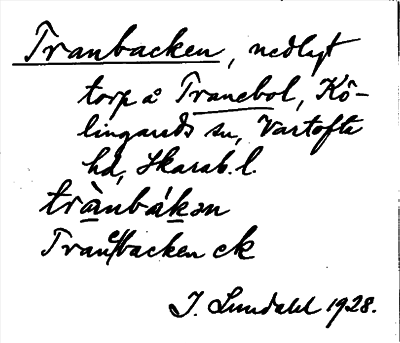 Tranbacken, nedlagt
torp å Tranebol, Kö-
lingareds sn, Vartofta
hd, Skarab. l.
trànbákən
Tranbacken ek
I. Lundahl 1928.